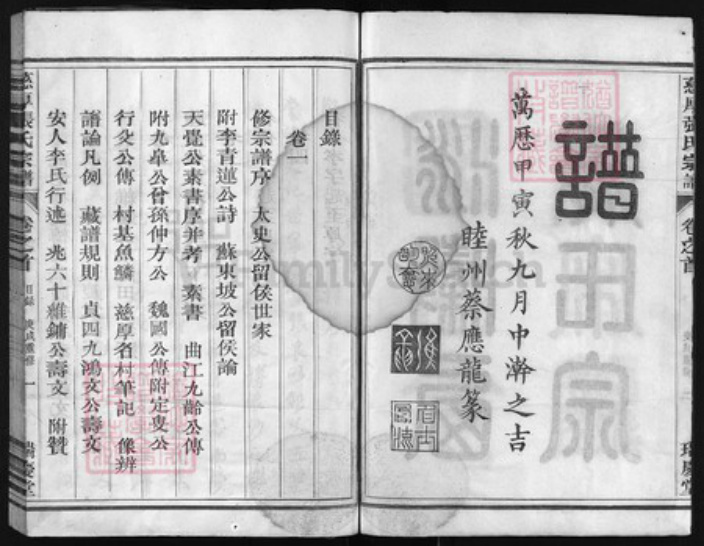 慈厚張氏宗譜
卷之首
譜
萬曆甲寅秋九月中澣之吉
睦州蔡應龍篆
目錄
卷一
修宗譜序 太史公留侯世家
附李青蓮公詩 蘇東坡公留侯論
天覺公素書序并考 素書 曲江九齡公傳
附九皋公曾孫仲方公 魏國公傳附定叟公
行父公傳 村基魚鱗 慈厚名村筆記 像辨
譜論凡例 藏譜規則 貞四九鴻文公壽文
安人李氏行述 兆六十維鏞公壽文 附贊
慈厚張氏宗譜
卷之首
目錄
一
FamilySearch